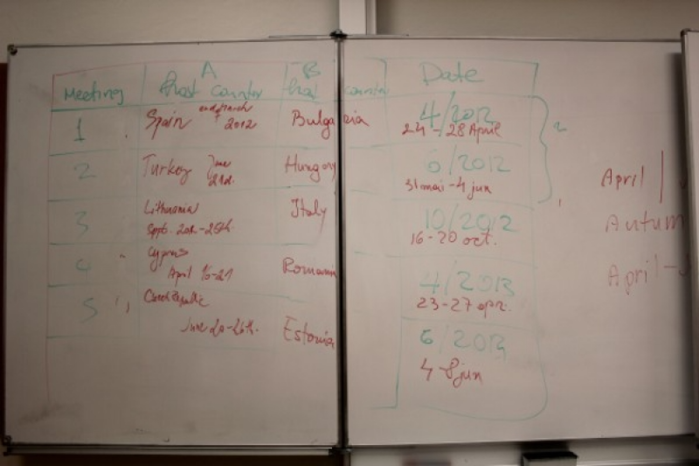 A B
Meeting Host Country Host Country Date
1 Spain end march 2012 Bulgaria 4/2012
24-28 April
2 Turkey June Hungary 6/2012
31 mai-4 jun
3 Lithuania Italy 10/2012
Sept. 20th-25th 16-20 oct.
4 Cyprus Romania 4/2013
April 16-21 23-27 apr.
5 Czech Republic 6/2013
June 20-26th. Estonia 4-8 jun
2
April
Autum
April-